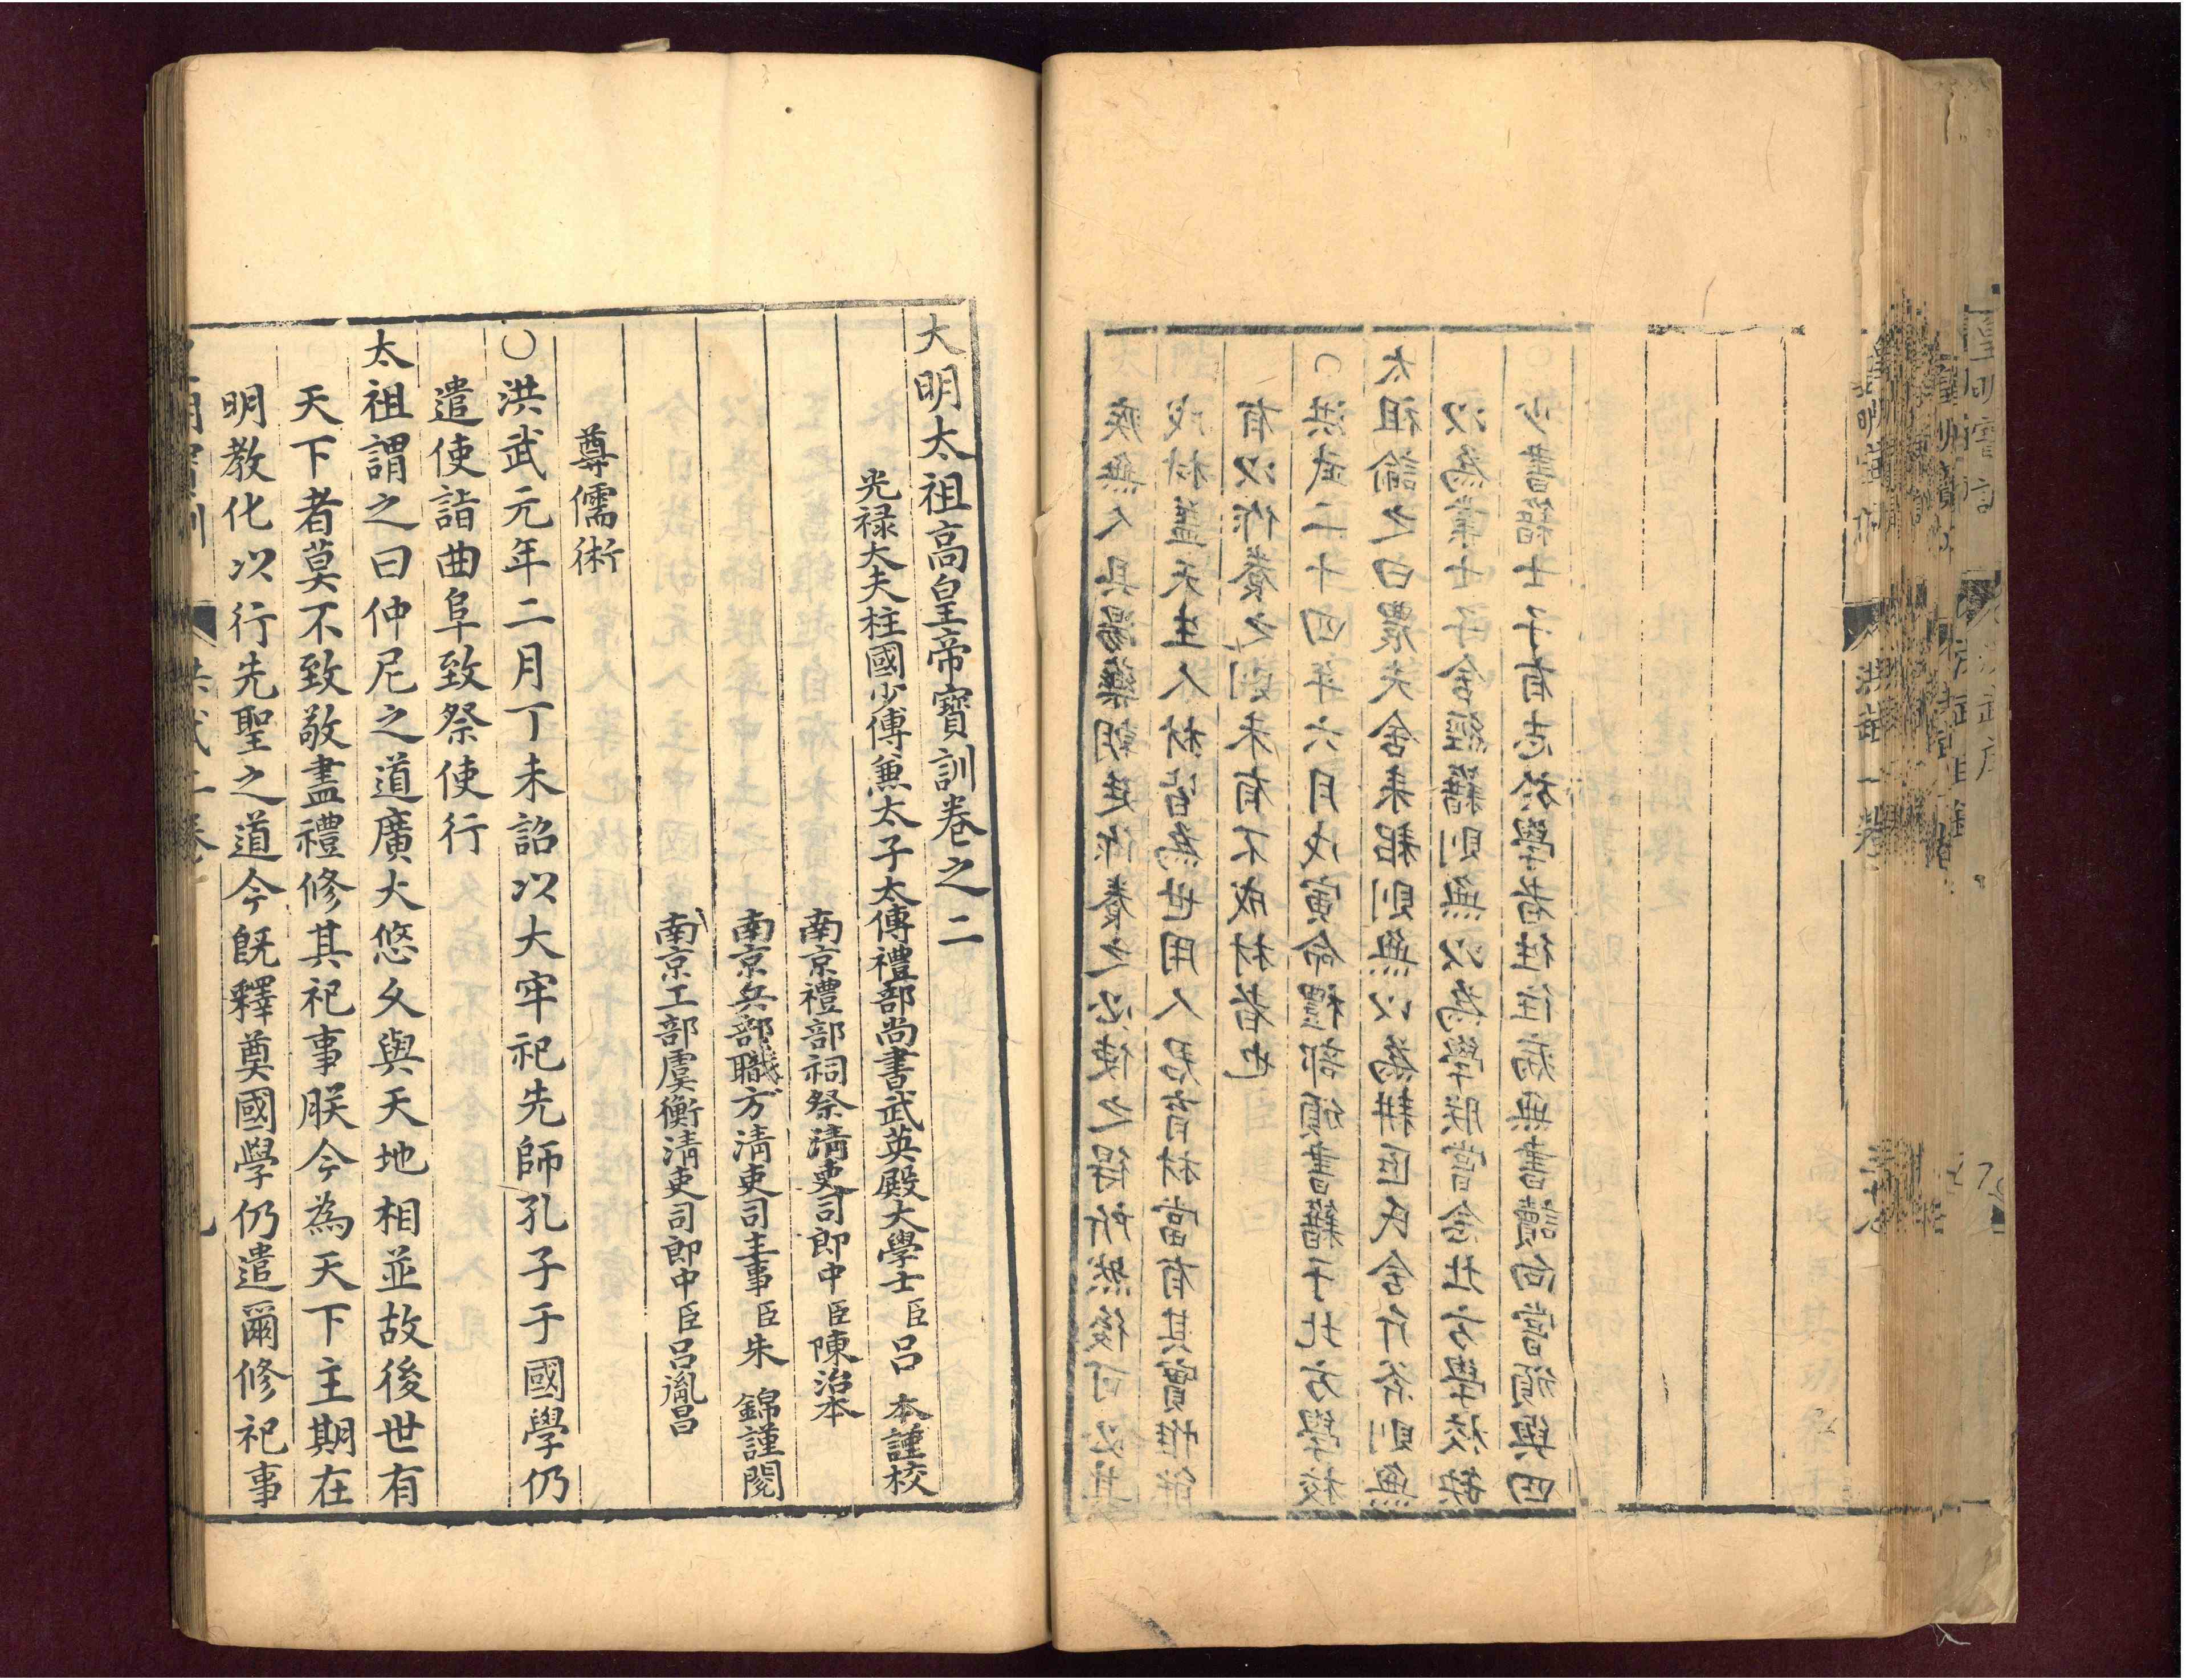 疾無人具湯藥朝廷作養之必使之得所然後可必其
成材蓋天生人材皆為世用人君育材當有其實惟能
有以作養之則未有不成材者也
○洪武二十四年六月戊寅命禮部頒書籍于北方學校
太祖諭之曰農夫舍耒耜則無以為耕匠氏舍斤斧則無
以為業士子舍經籍則無以為學朕嘗念北方學校缺
少書籍士子有志於學者往往病無書讀向嘗頒與四
大明太祖高皇帝寶訓卷之二
光禄大夫柱國少傅兼太子太傅禮部尚書武英殿大學士臣呂 本謹校
南京禮部祠祭清吏司郎中臣陳治本
南京兵部職方清吏司主事臣朱 錦謹閱
南京工部虞衡清吏司郎中臣呂胤昌
尊儒術
○洪武元年二月丁未詔以大牢祀先師孔子于國學仍
遣使詣曲阜致祭使行
太祖謂之曰仲尼之道廣大悠久與天地相並故後世有
天下者莫不致敬盡禮修其祀事朕今為天下主期在
明教化以行先聖之道今既釋奠國學仍遣爾修祀事